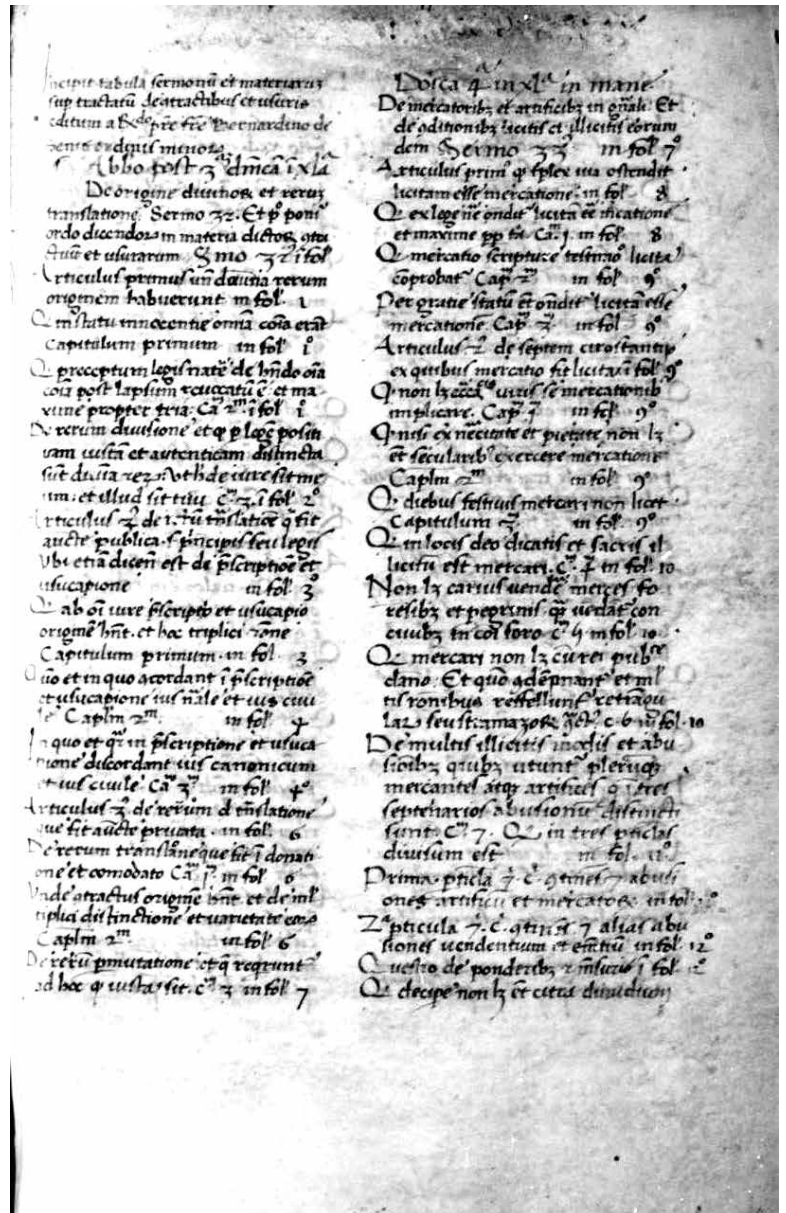 Incipit tabula sermonũ et materiaruȝ
sup tractatũ de ctractibus et usuris
editum a Rdo pre fre Bernardino de
senis ordinis minorȝ
Sabbo post 3ã dñicã ĩ xlã
De origine diuinoȝ et reruȝ
translatione. Sermo 32. Et pº poni
ordo dicendorȝ in materia dictoȝ
ctuũ et usurarum Smo 32 ĩ fol
Articulus primus un dominia rerum
originem habuerunt in fol. 1
Q in statu innocentie omnia cõia erãt
Capitulum primum in fol 1º
Q preceptum legis nature de hñdo oĩa
cõia post lapsum reuocatũ ẽ et ma
xime propter tria. Cam 2m ĩ fol 1º
De rerum diuisione et q p lege positi
uam iustã et autenticam distincta
sũt dominia rerȝ
um. et illud sit tuũ Cm 3 ĩ fol 2º
Articulus 2 de rerũ trãslatiõe q fit
aucte publica. s principis seu legis
Vbi etiã dicẽ est de pscriptiõe et
usucapione in fol 3º
Q ab oĩ iure pscriptio et usucapio
originẽ hñt. et hoc triplici rõne
Capitulum primum. in fol. 3
Quo et in quo cordant ĩ pscriptiõe
et usucapione ius nãle et ius ciui
le Caplm 2m. in fol 4
In quo et qr in pscriptione et usuca
pione discordant ius canonicum
et ius ciuile Cam 3m in fol 4º
Articulus 3 de rerum trñslatione
que fit aucte priuata. in fol. 6
De rerum translãne que fit ĩ donati
one et comodato Cam 1m in fol 6
Vnde ctractus originẽ hñt. et de ml
tiplici distinctionẽ et uarietate eorȝ
Caplm 2m. in fol 6
De rerũ pmutatione et q requrunt
ad hoc q iusta sit. Cm 3 in fol 7
Doĩca 4a in xla in mane
De mercatoribȝ et artificibȝ in gñali. Et
de cditionibȝ licitis et illicitis eorum
dem Sermo 33 in fol 7º
Articulus primº q tplex uia ostendit
licitam esse mercationẽ. in fol 8
Q ex lege nẽ õndit licita ẽe mcatione
et maxime pp Cam 1. in fol 8
Q mercatio scripture testimõ licita
cõprobat Capm 2m in fol 9º
Per gratie statũ õndit licitã esse
mercationẽ. Capm 3 in fol 9º
Articulus 2 de septem circũstantijs
ex quibus mercatio fit licita ĩ fol 9º
Q non lȝ uiris se mercationibȝ
implicare. Capm 1 in fol 9º
Q nisi ex necitate et pietate non lȝ
et secularibȝ exercere mercatione
Caplm 2m in fol 9º
Q diebus festiuis mercari non licet
Capitulum 3 in fol. 9º
Q in locis deo dicatis et sacris il
licitũ est mercari. Cm 4 in fol 10
Non lȝ carius uendẽ merces fo
resibȝ et pegrinis. qȝ uedãt con
ciuibȝ in cõi foro Cm 5 in fol 10
Q mercari non lȝ cũ rei publce
dãno. Et quo cdẽpnant et ml
tis rõnibus reffellunt
Cm 6 in fol. 10
De multis illicitis modis et abu
sionibȝ quibȝ utuntur pleriqȝ
mercantes atqȝ artifices q ĩ tres
septenarios abusionũ distincti
sunt. Cm 7. Q in tres pticlas
diuisum est in fol. 11º
Prima pticla 7 C. ctinẽs 7 abusi
ones artificũ et mercatorȝ in fol. 12º
2a pticula 7. C. ctinẽs 7 alias abu
siones uendentium et emẽtiũ in fol. 12º
Questio de ponderibȝ et mẽsuris ĩ fol. 12º
Q decipe non lȝ et citra dimidium